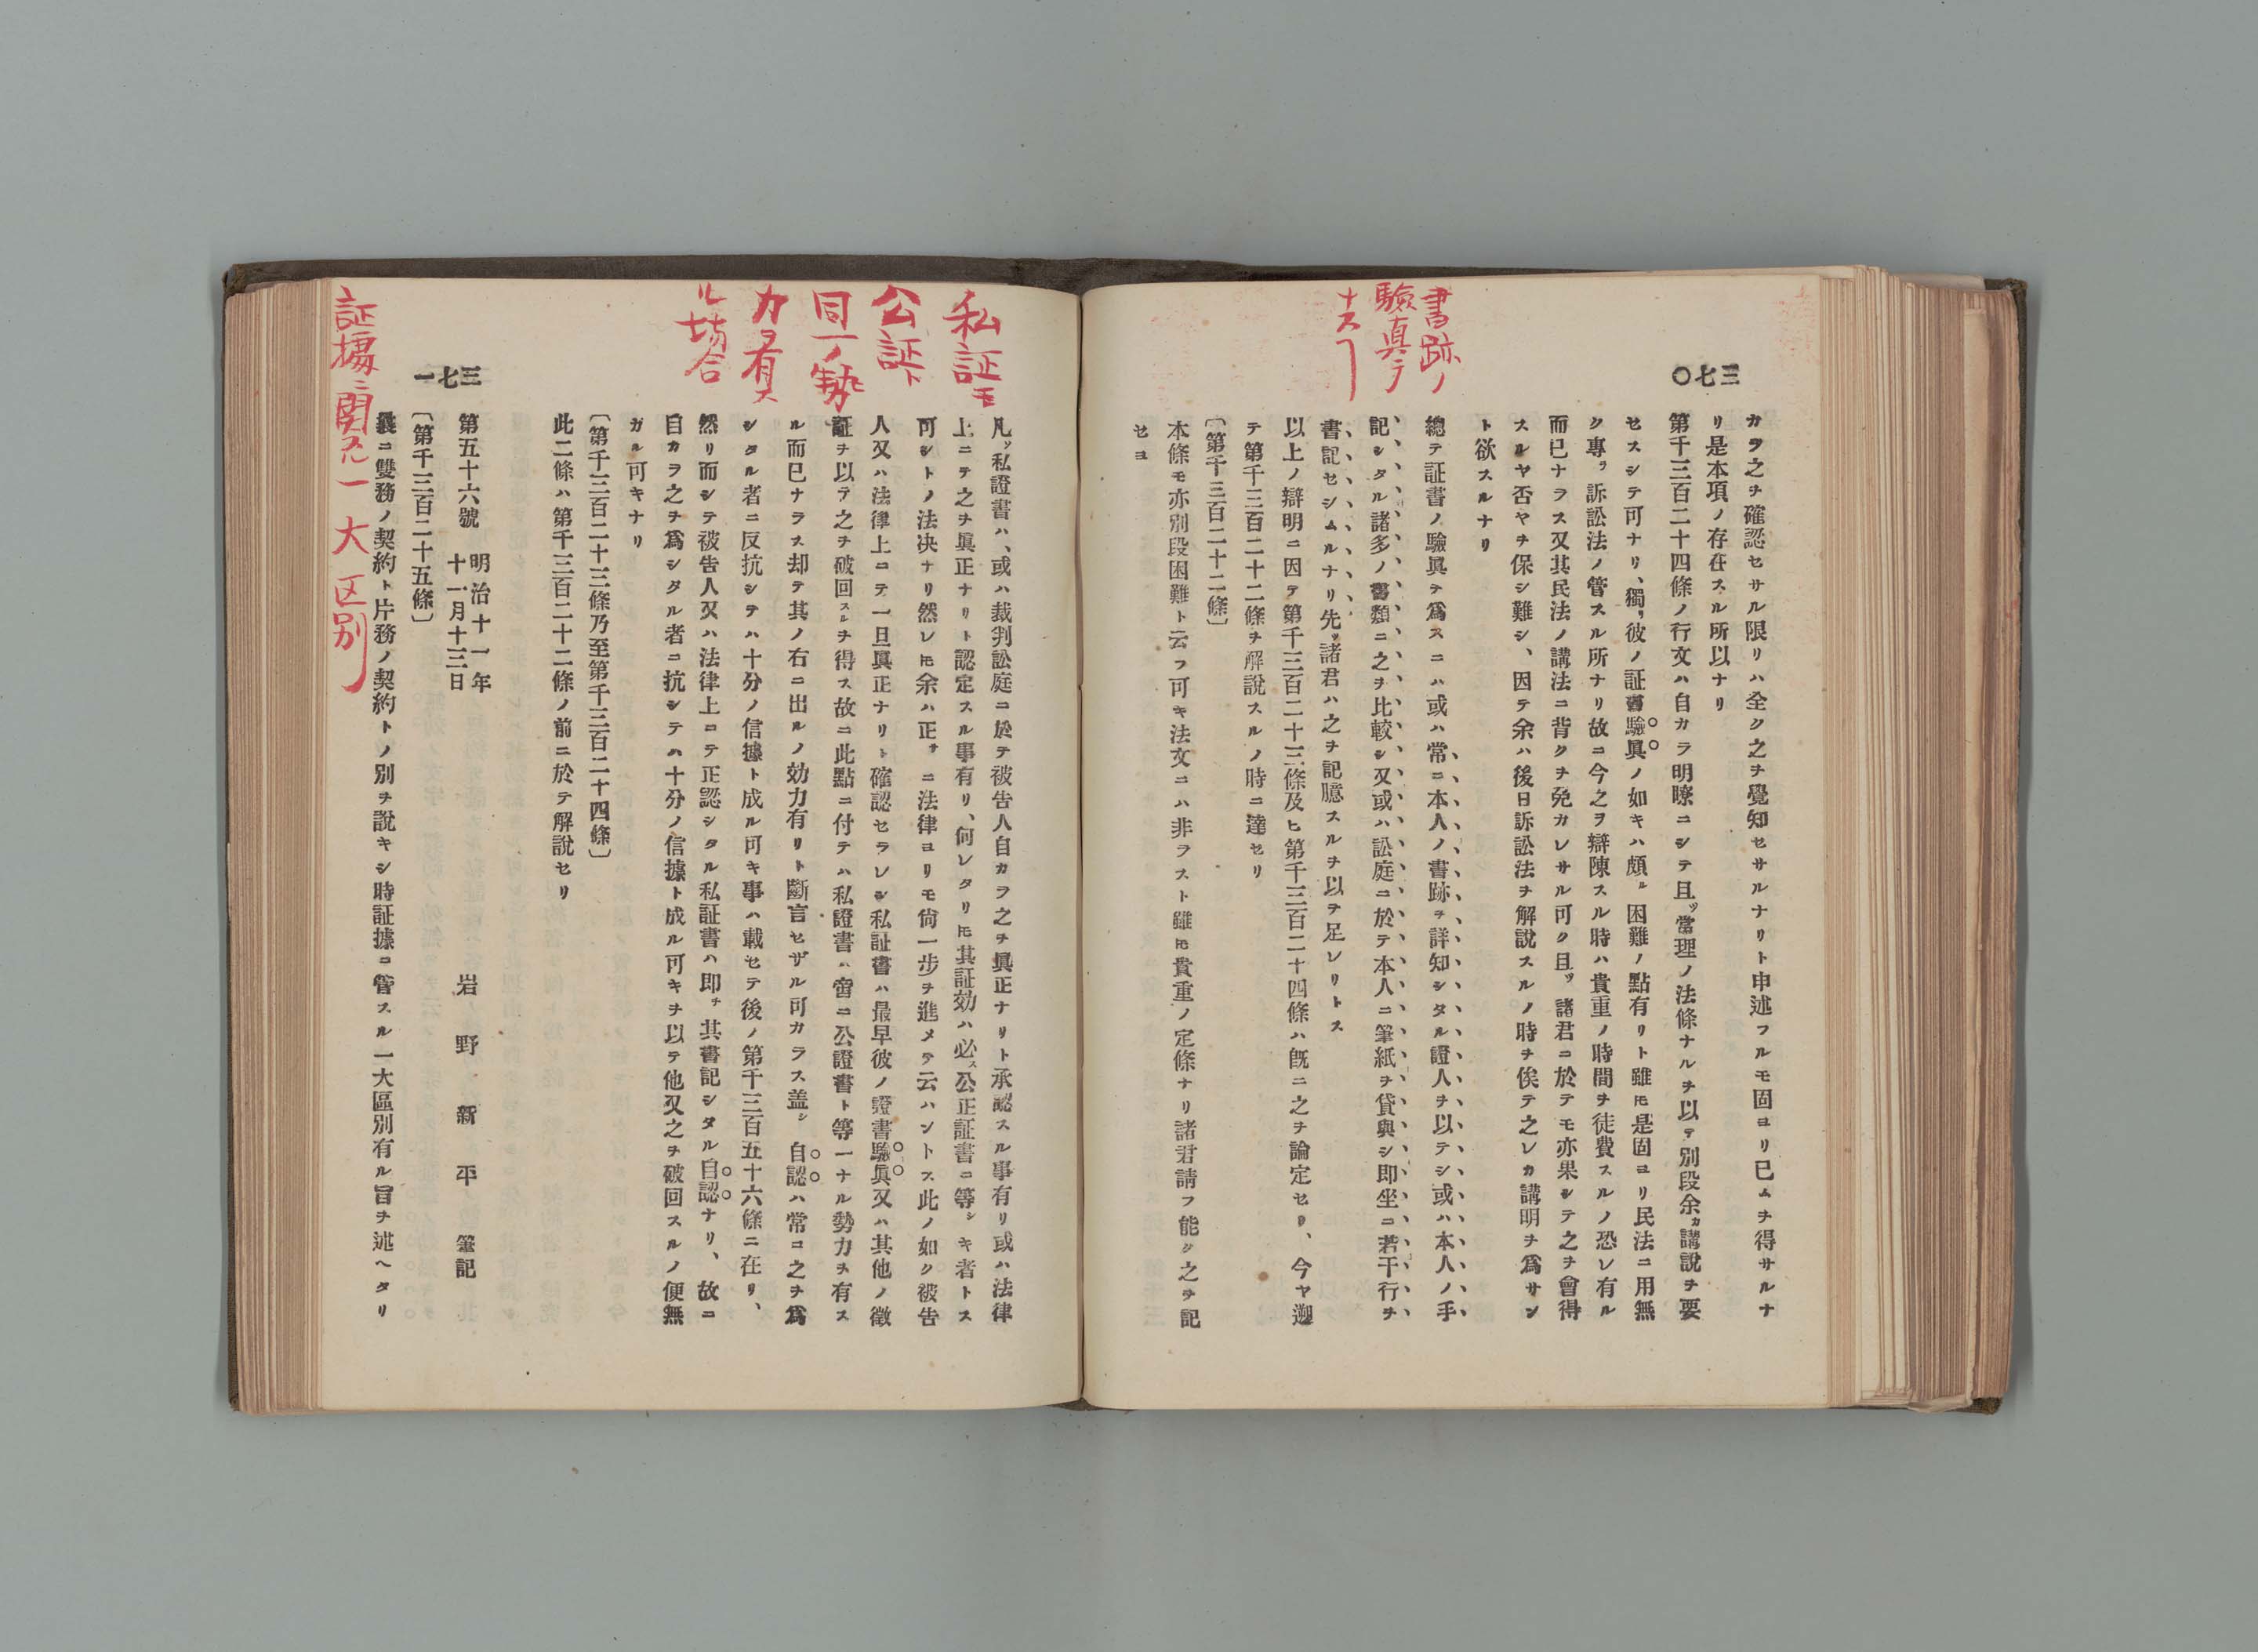 三七〇
書跡ノ
驗真ヲ
ナスヿ
カラ之ヲ確認セサル限リハ全ク之ヲ覺知セサルナリト申述フルモ固ヨリ已ムヲ得サルナ
リ是本項ノ存在スル所以ナリ
第千三百二十四條ノ行文ハ自カラ明瞭ニシテ且ッ常理ノ法條ナルヲ以テ別段余カ講說ヲ要
セスシテ可ナリ、獨リ彼ノ証書驗眞ノ如キハ頗ル困難ノ點有リト雖𪜈是固ヨリ民法ニ用無
ク專ラ訴訟法ノ管スル所ナリ故ニ今之ヲ辯陳スル時ハ貴重ノ時間ヲ徒費スルノ恐レ有ル
而已ナラス又其民法ノ講法ニ背クヲ免カレサル可ク且ッ諸君ニ於テモ亦果シテ之ヲ會得
スルヤ否ヤヲ保シ難シ、因テ余ハ後日訴訟法ヲ解說スルノ時ヲ俟テ之レカ講明ヲ爲サン
ト欲スルナリ
總テ証書ノ驗眞ヲ爲スニハ或ハ常ニ本人ノ書跡ヲ詳知シタル證人ヲ以テシ或ハ本人ノ手
記シタル諸多ノ書類ニ之ヲ比較シ又或ハ訟庭ニ於テ本人ニ筆紙ヲ貸與シ即坐ニ若干行ヲ
書記セシムルナリ先ッ諸君ハ之ヲ記臆スルヲ以テ足レリトス
以上ノ辯明ニ因テ第千三百二十三條及ヒ第千三百二十四條ハ既ニ之ヲ論定セリ、今ヤ遡
テ第千三百二十二條ヲ解說スルノ時ニ達セリ
〔第千三百二十二條〕
本條モ亦別段困難ト云フ可キ法文ニハ非ラスト雖𪜈貴重ノ定條ナリ諸君請フ能ク之ヲ記
セヨ
私証モ
公証ト
同一ノ勢
力ヲ有ス
ル場合
凡ッ私證書ハ、或ハ裁判訟庭ニ於テ被告人自カラ之ヲ眞正ナリト承認スル事有リ或ハ法律
上ニテ之ヲ眞正ナリト認定スル事有リ、何レタリ𪜈其証効ハ必ス公正証書ニ等シキ者トス
可シトノ法決ナリ然レ𪜈余ハ正サニ法律ヨリモ尙一步ヲ進メテ云ハントス此ノ如ク被告
人又ハ法律上ニテ一旦眞正ナリト確認セラレシ私証書ハ最早彼ノ證書驗眞又ハ其他ノ徵
証ヲ以テ之ヲ破回スルヲ得ス故ニ此點ニ付テハ私證書ハ啻ニ公證書ト等一ナル勢力ヲ有ス
ル而已ナラス却テ其ノ右ニ出ルノ効力有リト斷言セザル可カラス盖シ自認ハ常ニ之ヲ爲
シタル者ニ反抗シテハ十分ノ信據ト成ル可キ事ハ載セテ後ノ第千三百五十六條ニ在リ、
然リ而シテ被告人又ハ法律上ニテ正認シタル私証書ハ即チ其書記シタル自認ナリ、故ニ
自カラ之ヲ爲シタル者ニ抗シテハ十分ノ信據ト成ル可キヲ以テ他又之ヲ破回スルノ便無
ガル可キナリ
〔第千三百二十三條乃至第千三百二十四條〕
此二條ハ第千三百二十二條ノ前ニ於テ解說セリ
三七一
第五十六號 明治十一年
十一月十三日 岩野新平筆記
〔第千三百二十五條〕
曩ニ雙務ノ契約ト片務ノ契約トノ別ヲ說キシ時証據ニ管スル一大區別有ル旨ヲ述ヘタリ
証據ニ関スル一大区別